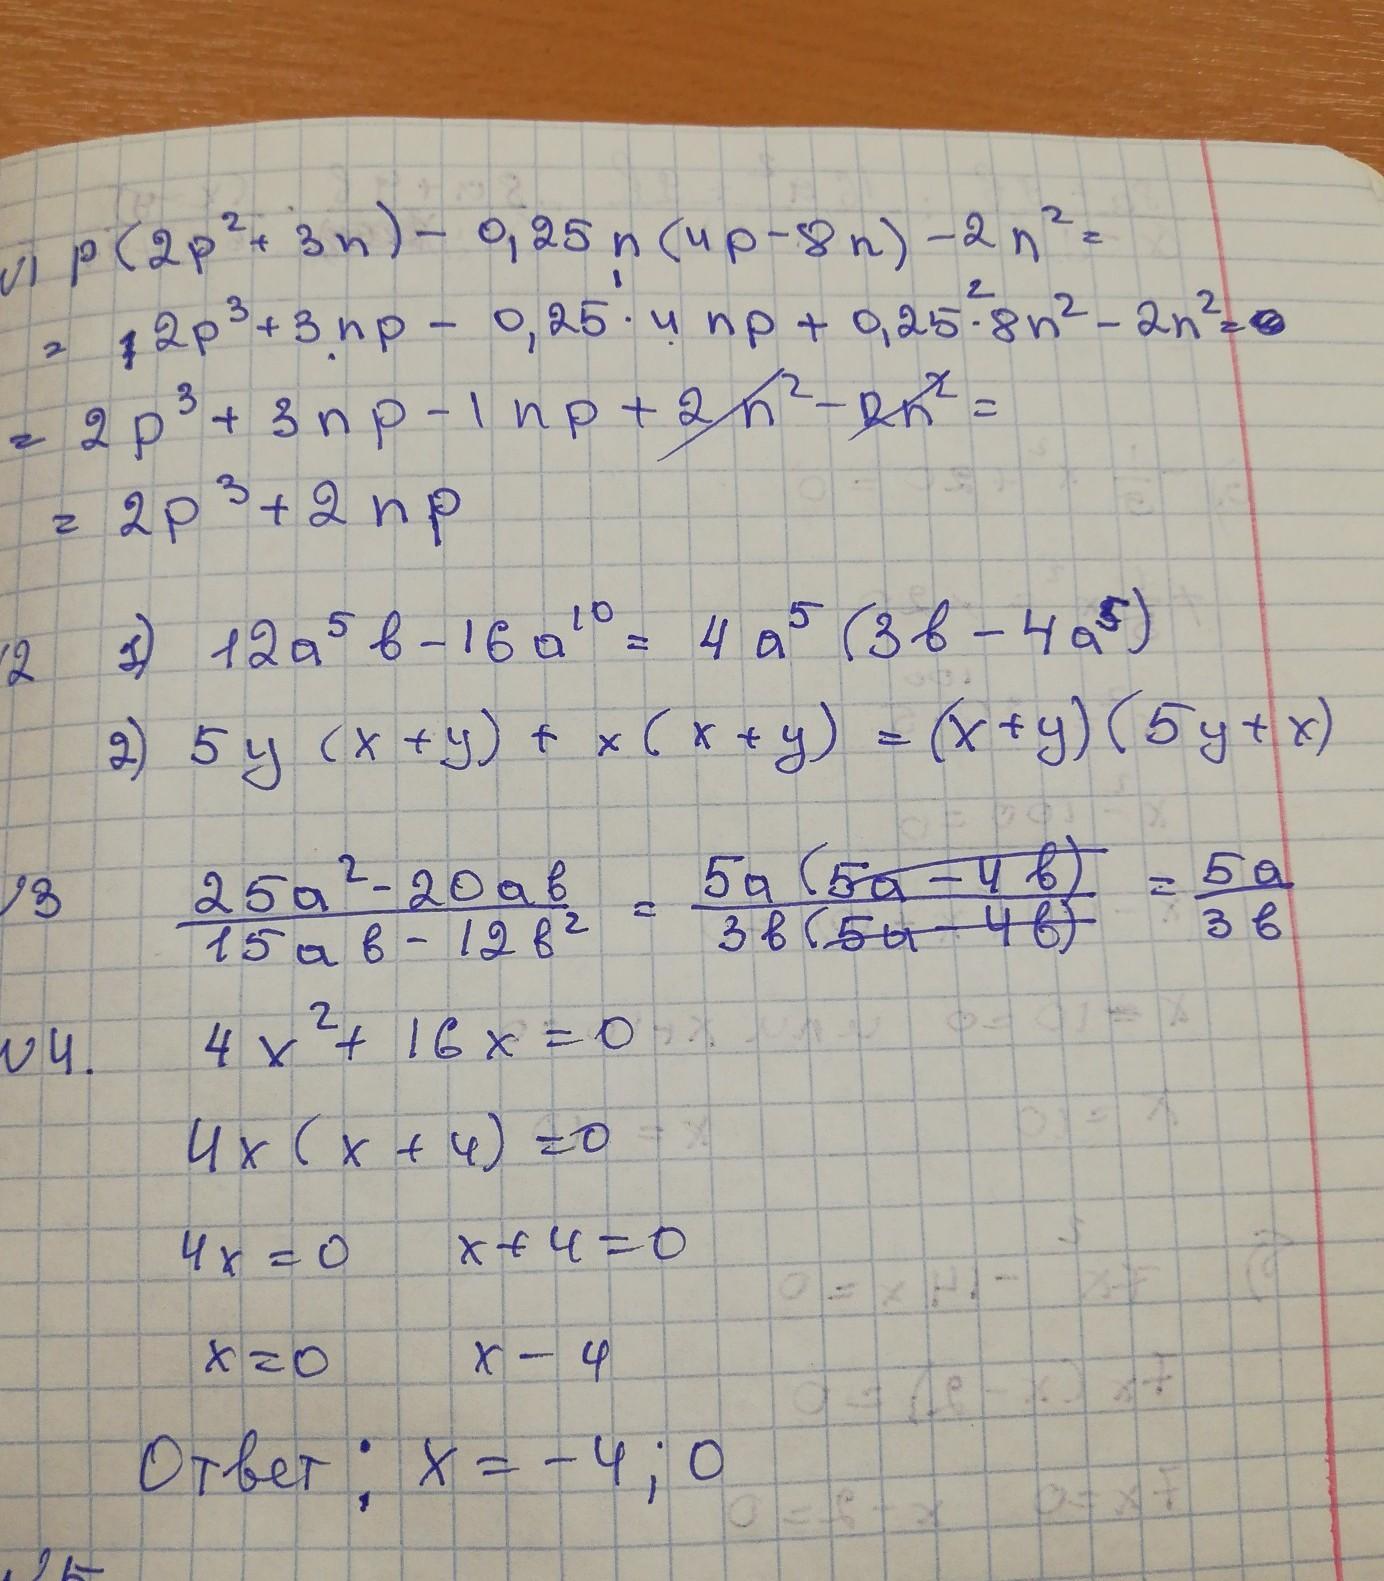 √1 p(2p² + 3n) - 0,25n(4p - 8n) - 2n² =
= 2p³ + 3np - 0,25 · 4np + 0,25 · 8n² - 2n² =
= 2p³ + 3np - 1np + 2n² - 2n² =
= 2p³ + 2np
√2 1) 12a⁵в - 16a¹⁰ = 4a⁵(3в - 4a⁵)
2) 5y(x+y) + x(x+y) = (x+y)(5y+x)
√3 25a² - 20aв / 15aв - 12в² = 5a(5a - 4в) / 3в(5a - 4в) = 5a / 3в
√4. 4x² + 16x = 0
4x(x+4) = 0
4x = 0 x+4 = 0
x = 0 x - 4
Ответ: x = -4; 0
√5